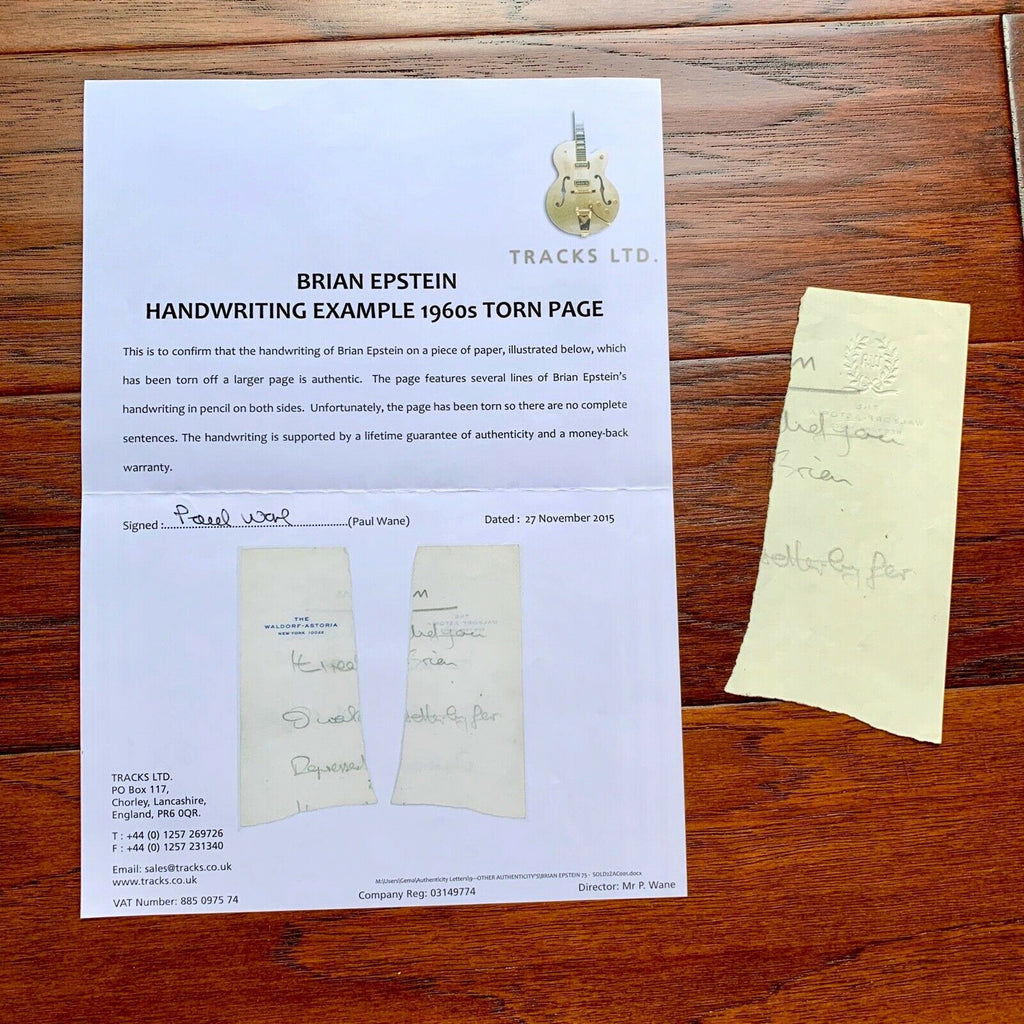 TRACKS LTD.
BRIAN EPSTEIN
HANDWRITING EXAMPLE 1960s TORN PAGE
This is to confirm that the handwriting of Brian Epstein on a piece of paper, illustrated below, which
has been torn off a larger page is authentic. The page features several lines of Brian Epstein's
handwriting in pencil on both sides. Unfortunately, the page has been torn so there are no complete
sentences. The handwriting is supported by a lifetime guarantee of authenticity and a money-back
warranty.
Signed :..........(Paul Wane)
Paul Wane
Dated : 27 November 2015
THE
WALDORF-ASTORIA
NEW YORK 10022
Depressed
you
Brian
TRACKS LTD.
PO Box 117,
Chorley, Lancashire,
England, PR6 0QR.
T : +44 (0) 1257 269726
F : +44 (0) 1257 231340
Email: sales@tracks.co.uk
www.tracks.co.uk
VAT Number: 885 0975 74
Company Reg: 03149774
Director: Mr P. Wane
you
Brian